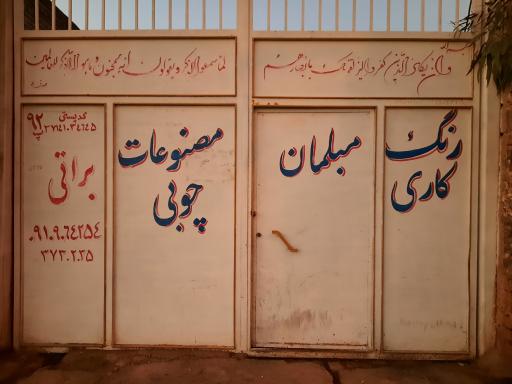 وان یکاد الذین کفروا لیزلقونک بابصارهم
لما سمعوا الذکر و یقولون انه لمجنون و ما هو الا ذکر للعالمین
رنگ
کاری
مبلمان
مصنوعات
چوبی
۹۲
کدپستی
براتی